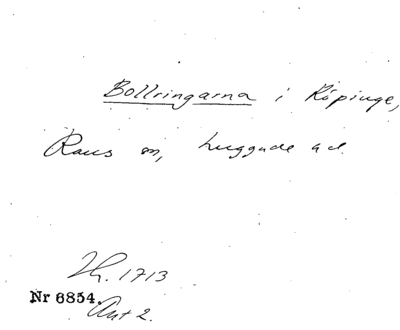 Bollringarna i Köpinge,
Raus sn, Luggude hd.
Lh. 1713
Nr 6854.
Ant 2.